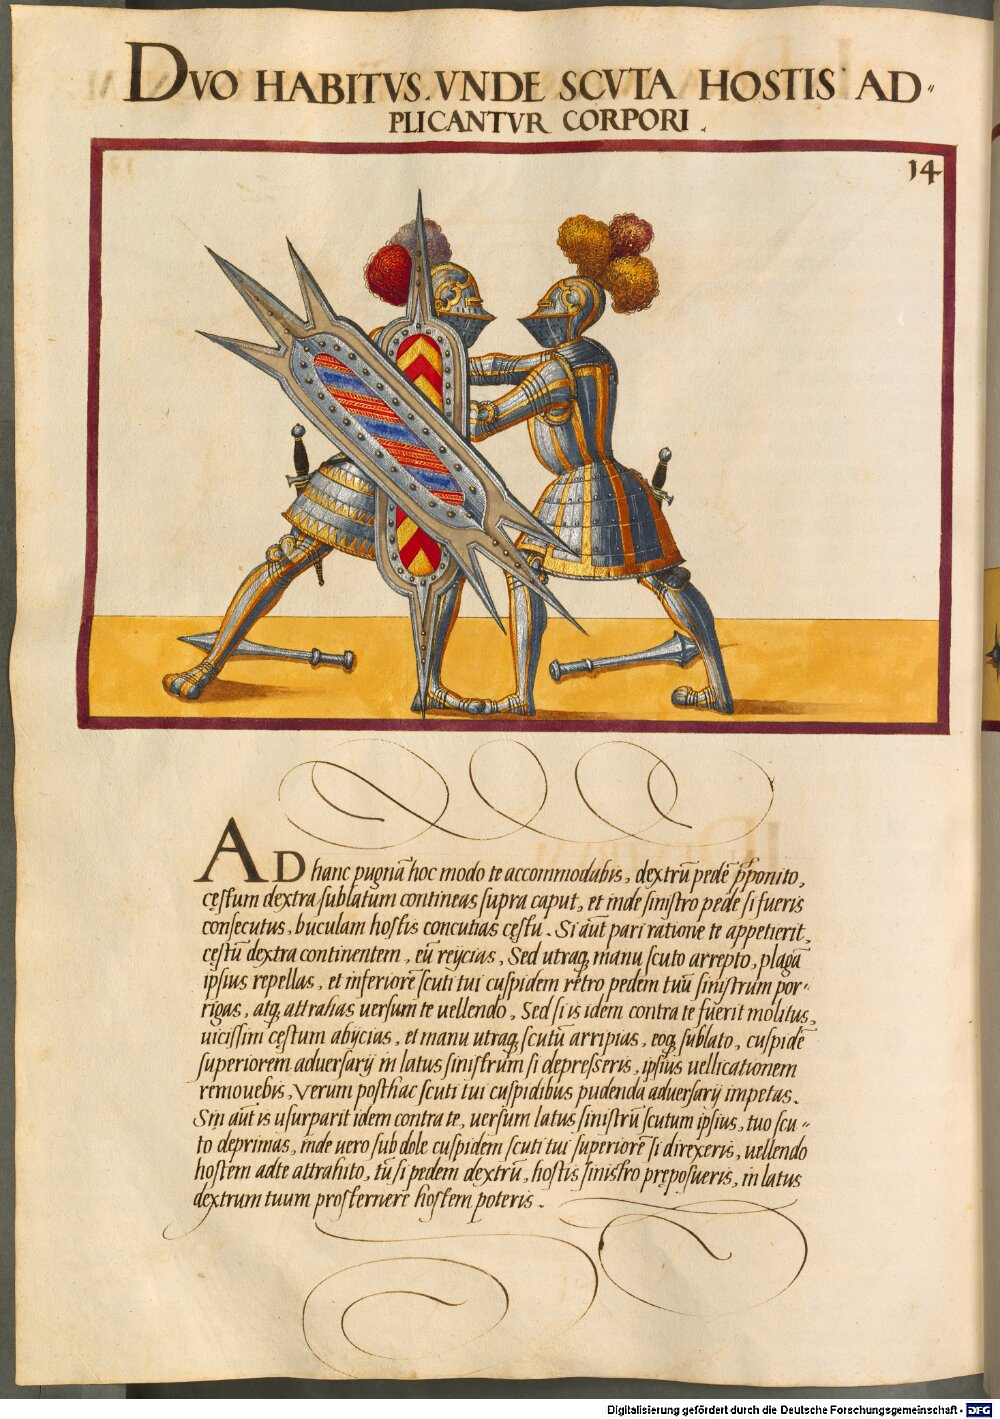 DVO HABITVS. VNDE SCVTA HOSTIS AD-
PLICANTVR CORPORI.
14
AD hanc pugnā hoc modo te accommodabis, dextrū pedē p̄ponito,
cęstum dextra sublatum contineas supra caput, et inde sinistro pede si fueris
consecutus, buculam hostis concutias cęstu. Si aūt pari ratione te appetierit,
cęstū dextra continentem, eū reijcias, Sed utraq, manu scuto arrepto, plagā
ipsius repellas, et inferiorē scuti tui cuspidem retro pedem tuū sinistrum por-
rigas, atq, attrahas versum te uellendo, Sed si is idem contra te fuerit molitus,
uicissim cęstum abijcias, et manu utraq, scutū arripias, eoq, sublato, cuspidē
superiorem aduersarij in latus sinistrum si depresseris, ipsius uellicationem
remouebis, Verum posthac scuti tui cuspidibus pudenda aduersarij impetas.
Sin aūt is usurparit idem contra te, uersum latus sinistrū scutum ipsius, tuo scu-
to deprimas, inde uero sub dole cuspidem scuti tui superiorē si direxeris, uellendo
hostem ad te attrahito, tū si pedem dextrū, hostis sinistro pręposueris, in latus
dextrum tuum prosternere hostem poteris.
Digitalisierung gefördert durch die Deutsche Forschungsgemeinschaft - DFG